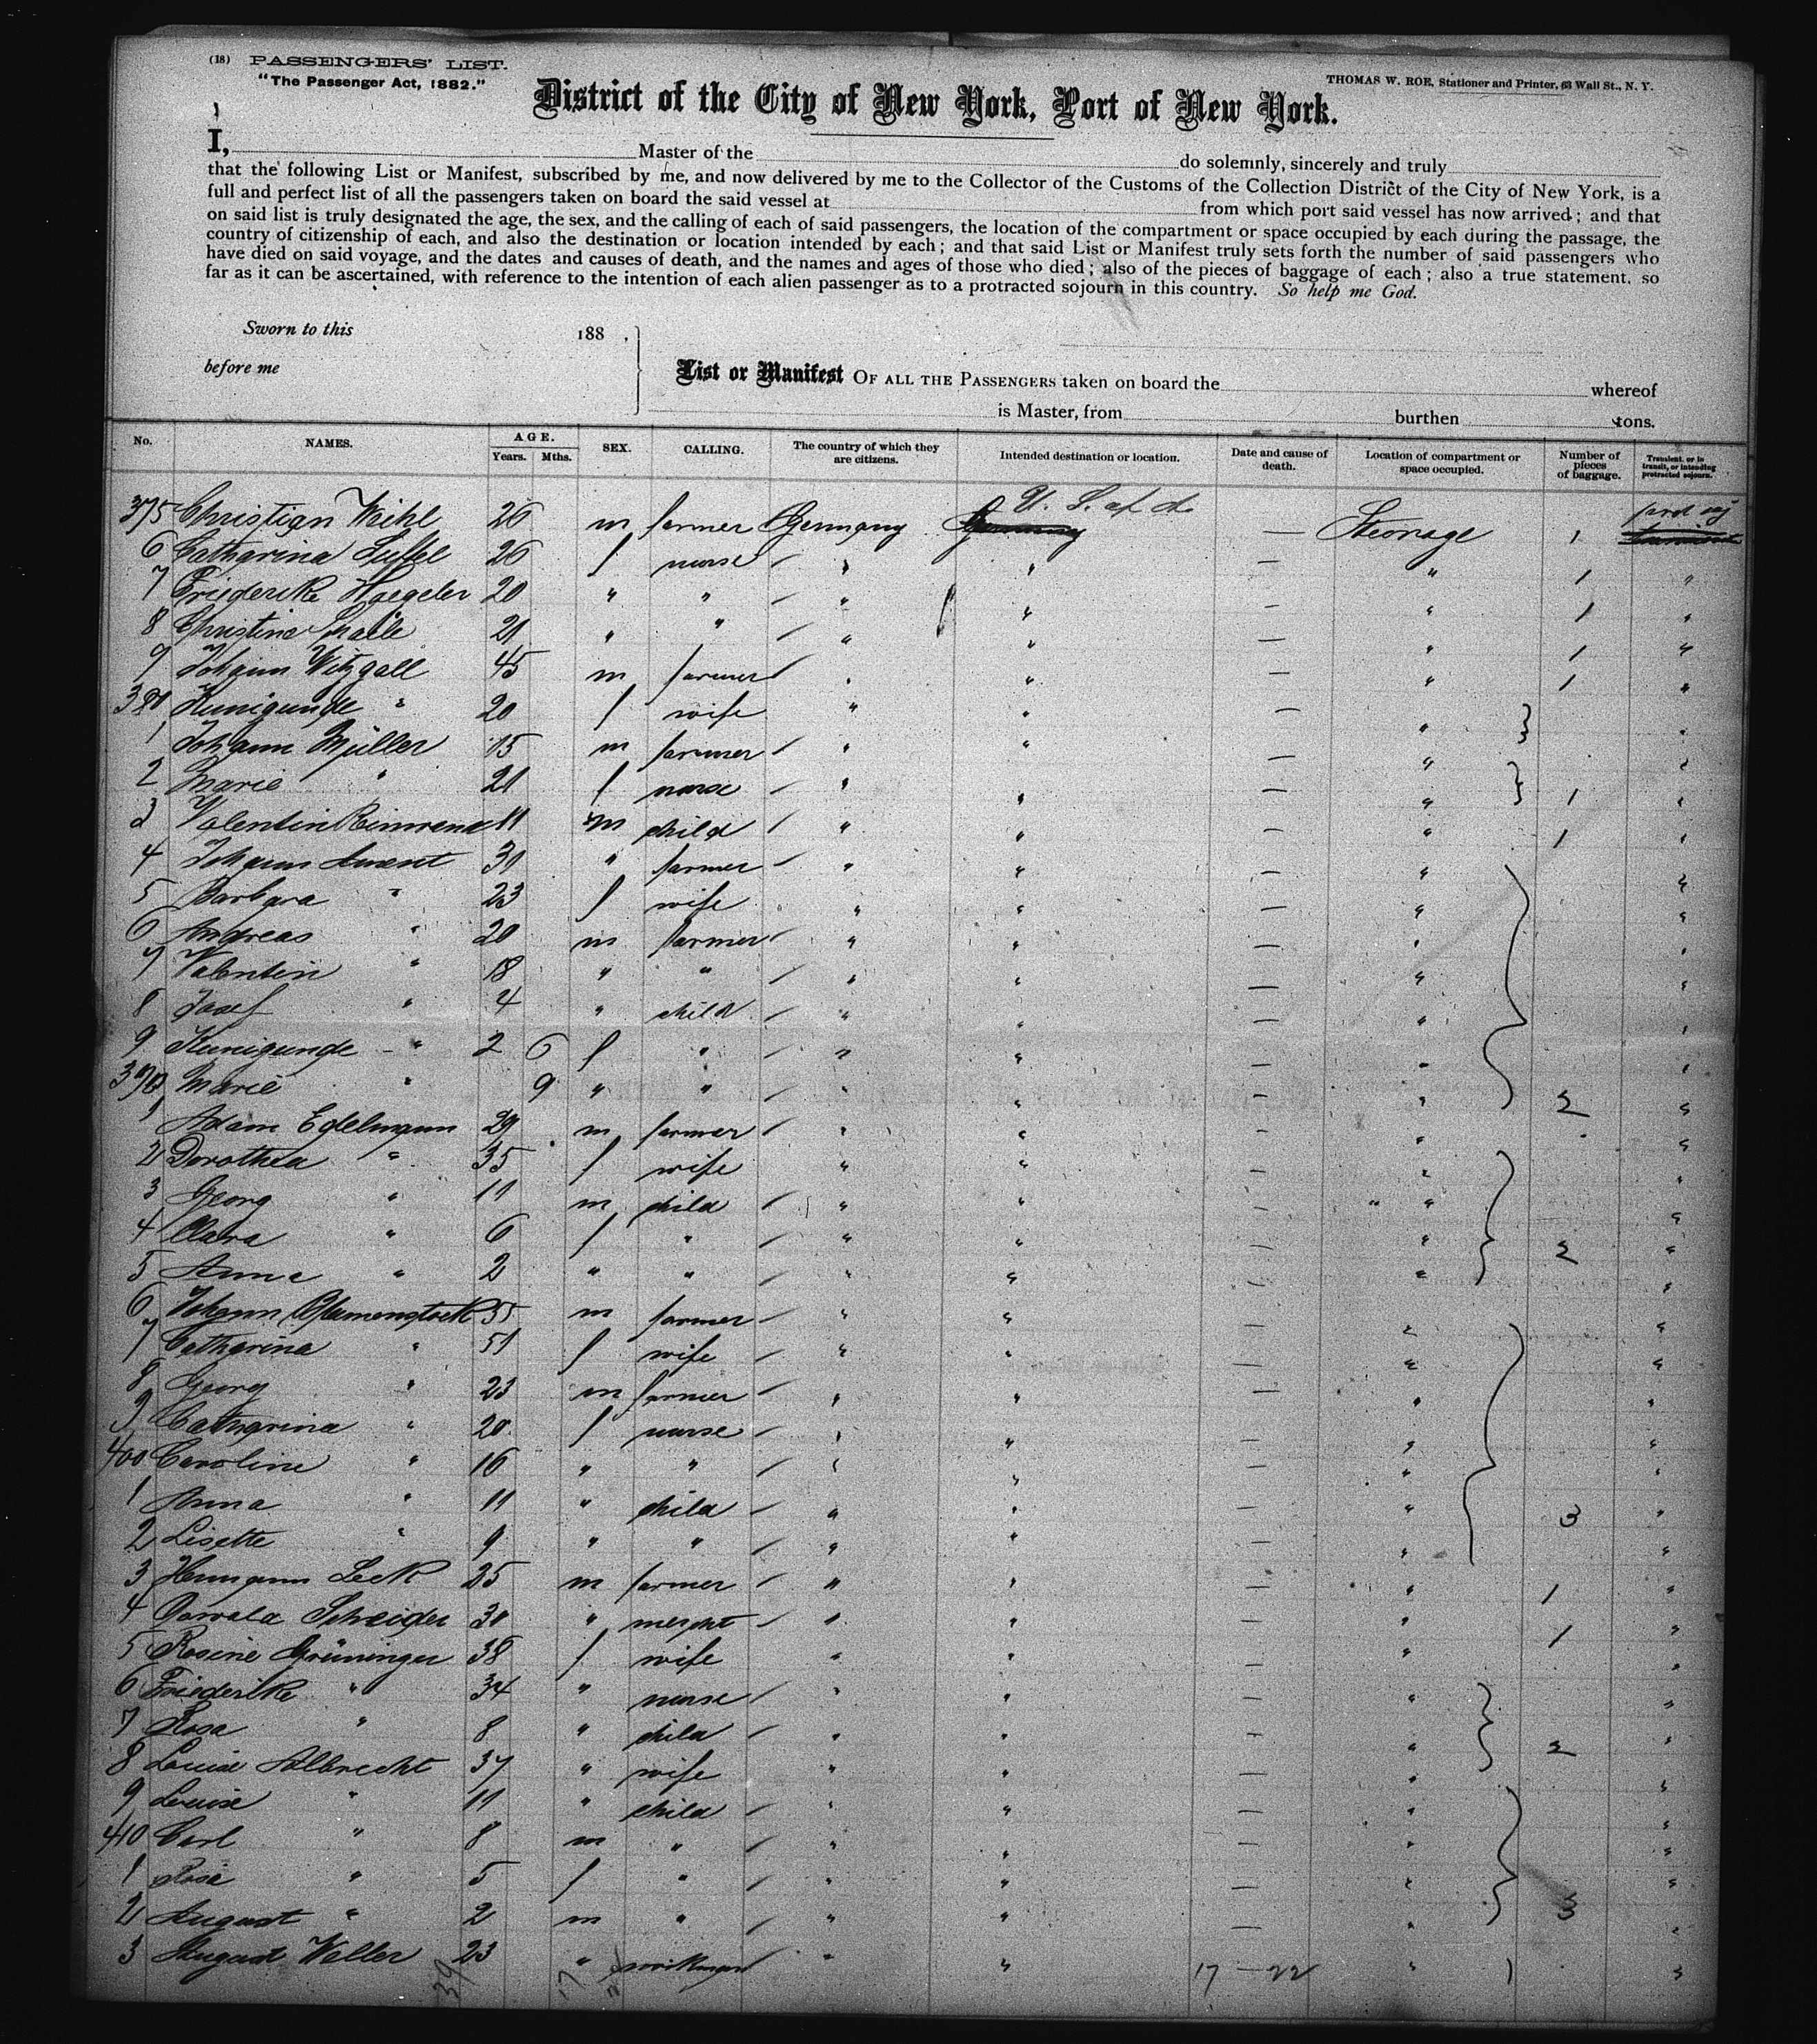 (18) PASSENGERS' LIST.
"The Passenger Act, 1882."
THOMAS W. ROE, Stationer and Printer, 63 Wall St., N. Y.
District of the City of New York, Port of New York.
I, Master of the do solemnly, sincerely and truly
that the following List or Manifest, subscribed by me, and now delivered by me to the Collector of the Customs of the Collection District of the City of New York, is a
full and perfect list of all the passengers taken on board the said vessel at from which port said vessel has now arrived; and that
on said list is truly designated the age, the sex, and the calling of each of said passengers, the location of the compartment or space occupied by each during the passage, the
country of citizenship of each, and also the destination or location intended by each; and that said List or Manifest truly sets forth the number of said passengers who
have died on said voyage, and the dates and causes of death, and the names and ages of those who died; also of the pieces of baggage of each; also a true statement, so
far as it can be ascertained, with reference to the intention of each alien passenger as to a protracted sojourn in this country. So help me God.
Sworn to this 188 ,
before me
List or Manifest OF ALL THE PASSENGERS taken on board the whereof
is Master, from burthen tons.
No. NAMES. AGE. Years. Mths. SEX. CALLING. The country of which they are citizens. Intended destination or location. Date and cause of death. Location of compartment or space occupied. Number of pieces of baggage. Transient, or in transit, or intending protracted sojourn.
375 Christian Weihl 26 m farmer Germany U. S. of A. — Steerage 1
6 Catharina 26 f nurse / " " — " 1 "
7 Friederike Haegeler 20 " " / " " — " 1 "
8 Christine 21 " " / " " — " 1 "
9 Johann Witzgall 45 m farmer / " " — " 1 "
380 Kunigunde " 20 f wife " " — " "
1 Johann Müller 15 m farmer / " " — " "
2 Marie " 21 f nurse / " " — " 1 "
3 Valentin 11 m child / " " — " 1 "
4 Johann Ament 31 " farmer / " " — " "
5 Barbara " 23 f wife " " — " "
6 Andreas " 20 m farmer / " " — " "
7 Valentin " 18 " " / " " — " "
8 Josef " 4 " child / " " — " "
9 Kunigunde " 2 6 f " / " " — " "
390 Marie " 9 " " / " " — " 2 "
1 Adam Edelmann 29 m farmer / " " — " "
2 Dorothea " 35 f wife " " — " "
3 Georg " 11 m child / " " — " "
4 Clara " 6 f " / " " — " 2 "
5 Anna " 2 " " / " " — " "
6 Johann Blumenstock 55 m farmer / " " — " "
7 Catharina " 51 f wife / " " — " "
8 Georg " 23 m farmer / " " — " "
9 Catharina " 20 f nurse / " " — " "
400 Caroline " 16 " " / " " — " "
1 Anna " 11 " child / " " — " 3 "
2 Lisette " 9 " " / " " — " "
3 Hermann Leck 25 m farmer / " " — " 1 "
4 Oswald Schneider 30 " mercht / " " — " 1 "
5 Rosine Grüninger 38 f wife " " — " "
6 Friederike " 34 " nurse / " " — " "
7 Rosa " 8 " child / " " — " 2 "
8 Louise Albrecht 37 " wife " " — " "
9 Louise " 11 " child / " " — " "
410 Carl " 8 m " / " " — " "
1 Rosa " 5 f " / " " — " "
2 August " 2 m " / " " — " 3 "
3 August Weller 23 " workman / " " 17 — 22 " "
39 17